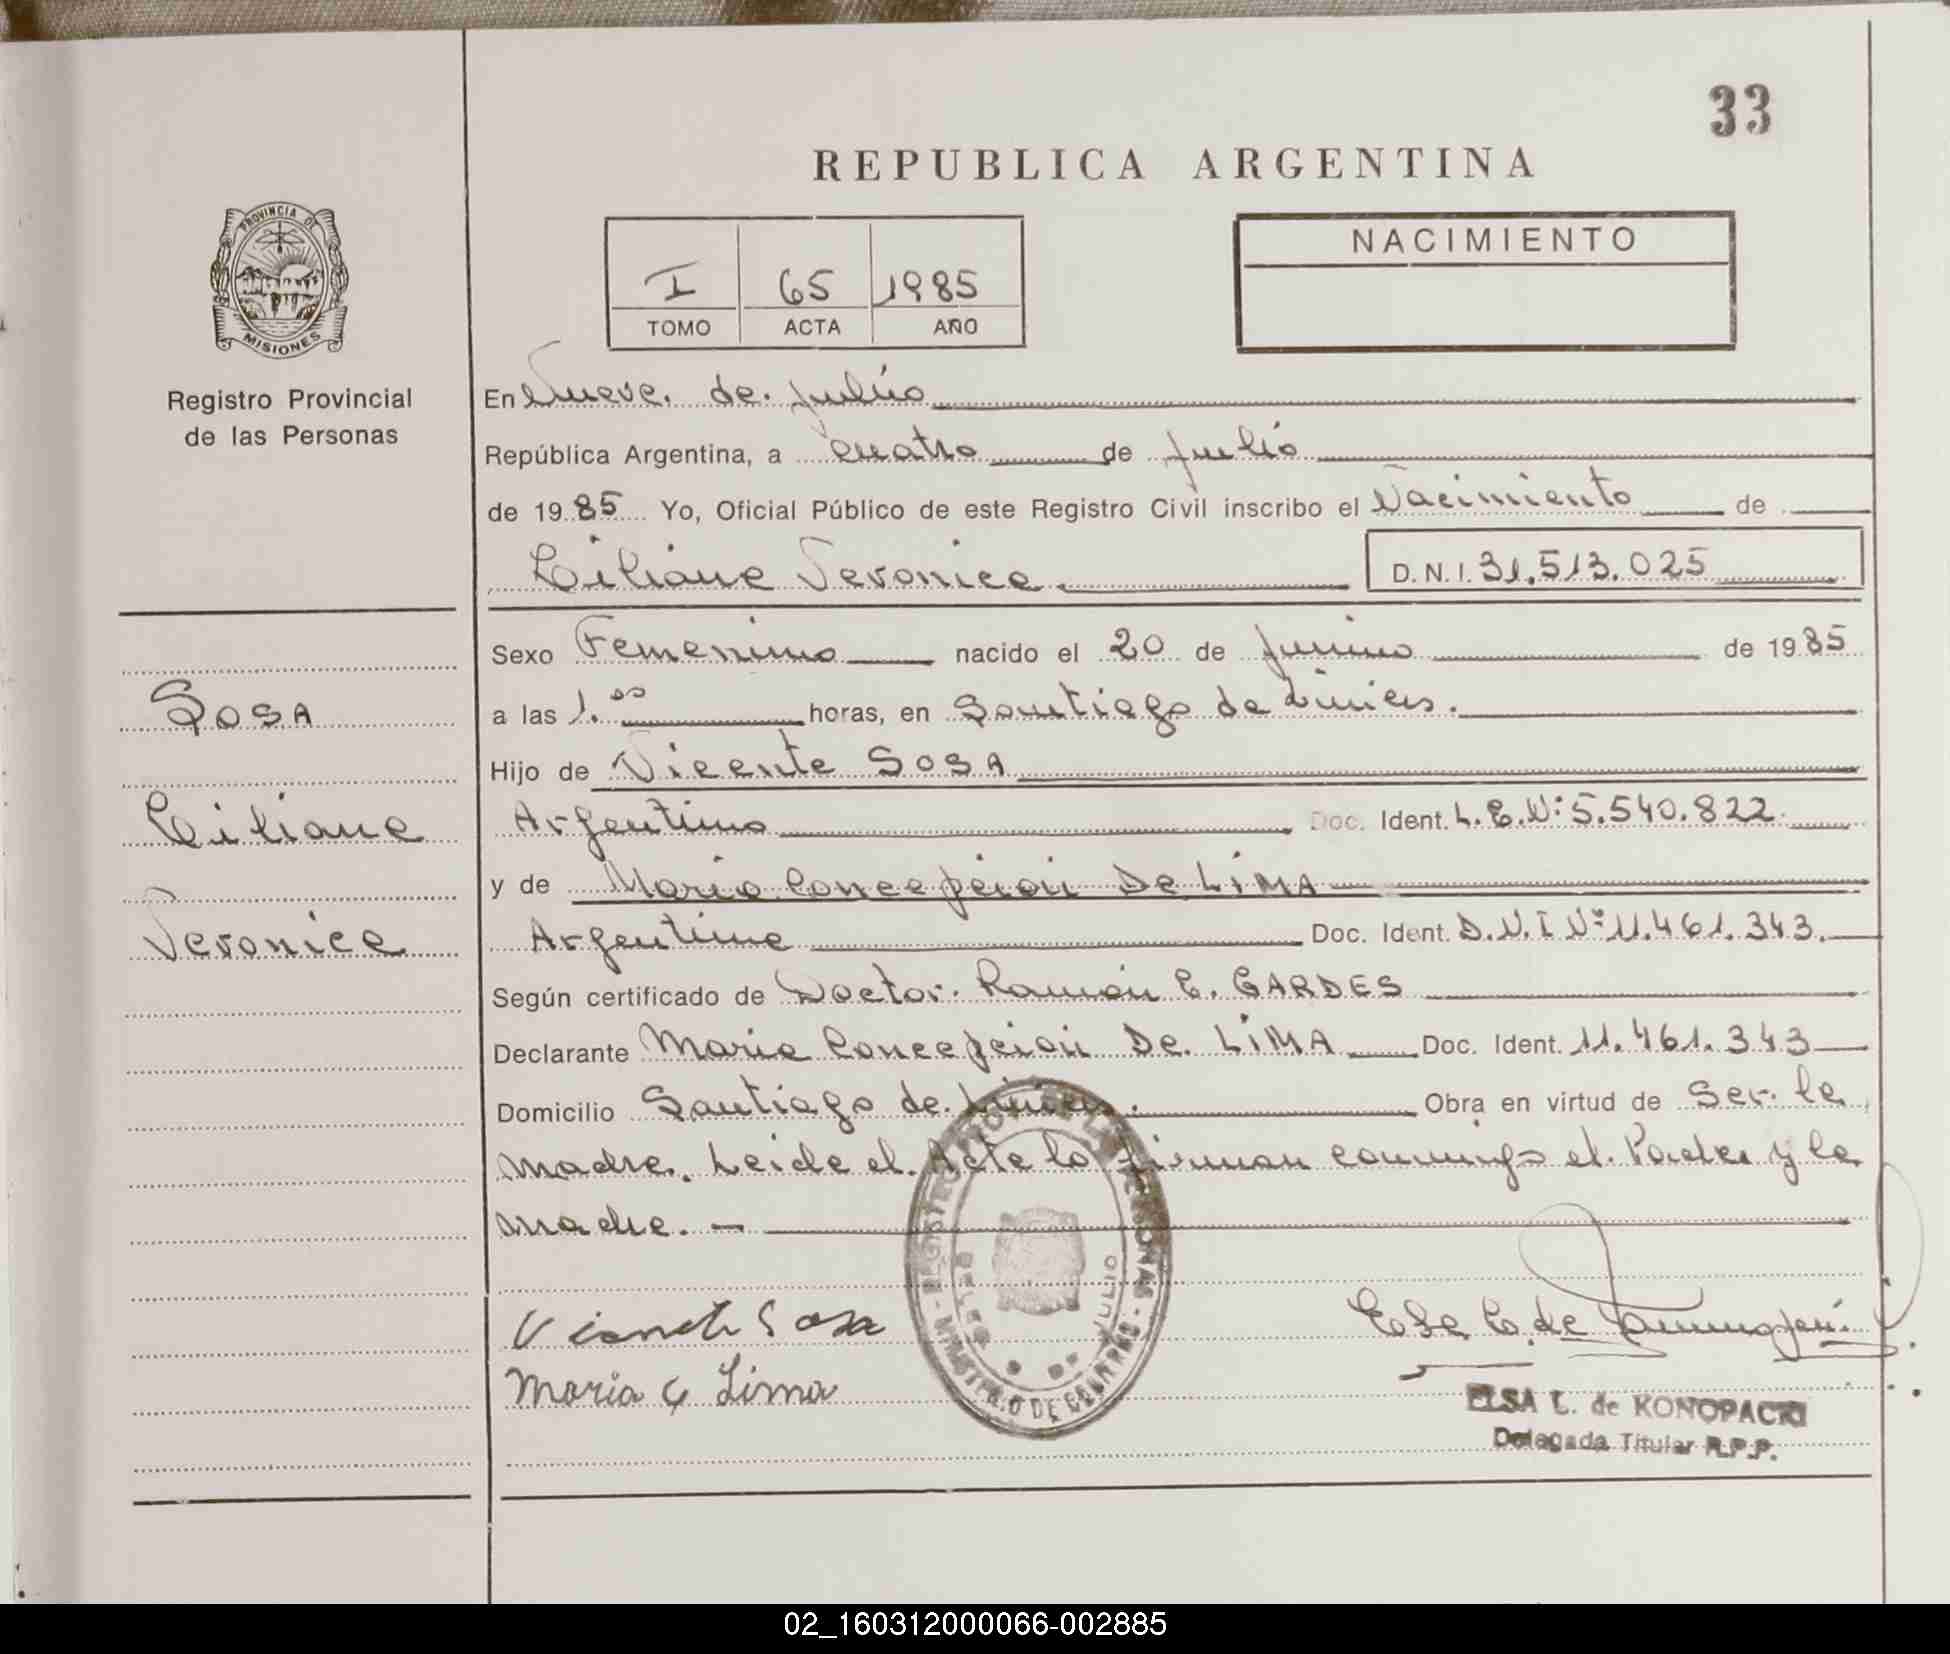 33
REPUBLICA ARGENTINA
PROVINCIA DE
MISIONES
Registro Provincial
de las Personas
I 65 1985
TOMO ACTA AÑO
NACIMIENTO
En Nueve de julio
República Argentina, a cuatro de julio
de 1985 Yo, Oficial Público de este Registro Civil inscribo el Nacimiento de
Liliana Veronica D.N.I. 31.513.025
Sexo Femenino nacido el 20 de junio de 1985
a las 1.00 horas, en Santiago de Liniers.
Hijo de Vicente SOSA
Argentino Doc. Ident. L.E.Nº 5.540.822
y de Maria Concepcion De LiMA
Argentina Doc. Ident. D.N.I Nº 11.461.343.
Según certificado de Doctor. Ramón E. GARDES
Declarante Maria Concepcion De LiMA Doc. Ident. 11.461.343
Domicilio Santiago de Liniers. Obra en virtud de Ser la
madre. Leida el Acta la firman conmigo el Padre y la
madre. —
SOSA
Liliana
Veronica
Vicente Sosa
Maria C Lima
REGISTRO PROV. DE LAS PERSONAS - MINISTERIO DE GOBIERNO -
JULIO
ELSA L. de KONOPACKI
Delegada Titular R.P.P.
02_160312000066-002885